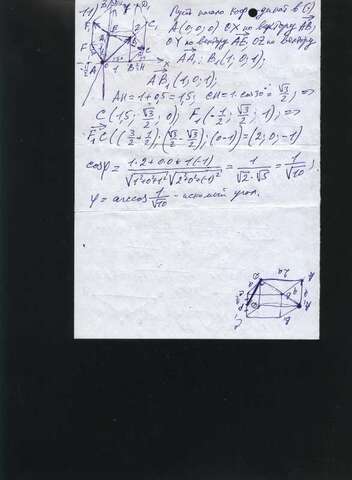 11) Пусть начало координат в (·)
A(0;0;0) OX по вектору AB;
OY по вектору AE, OZ по вектору
AA₁; B₁(1;0;1);
AB₁(1;0;1)
AH=1+0,5=1,5; CH=1·cos30°=√3/2; ⇒
C(1,5; √3/2; 0) F₁(-1/2; √3/2; 1); ⇒
F₁C((3/2+1/2);(√3/2-√3/2);(0-1))=(2;0;-1)
cosφ = (1·2+0·0+1(-1))/(√(1²+0²+1²) √(2²+0²+(-1)²)) = 1/(√2·√5) = 1/√10;
φ = arccos 1/√10 - искомый угол.